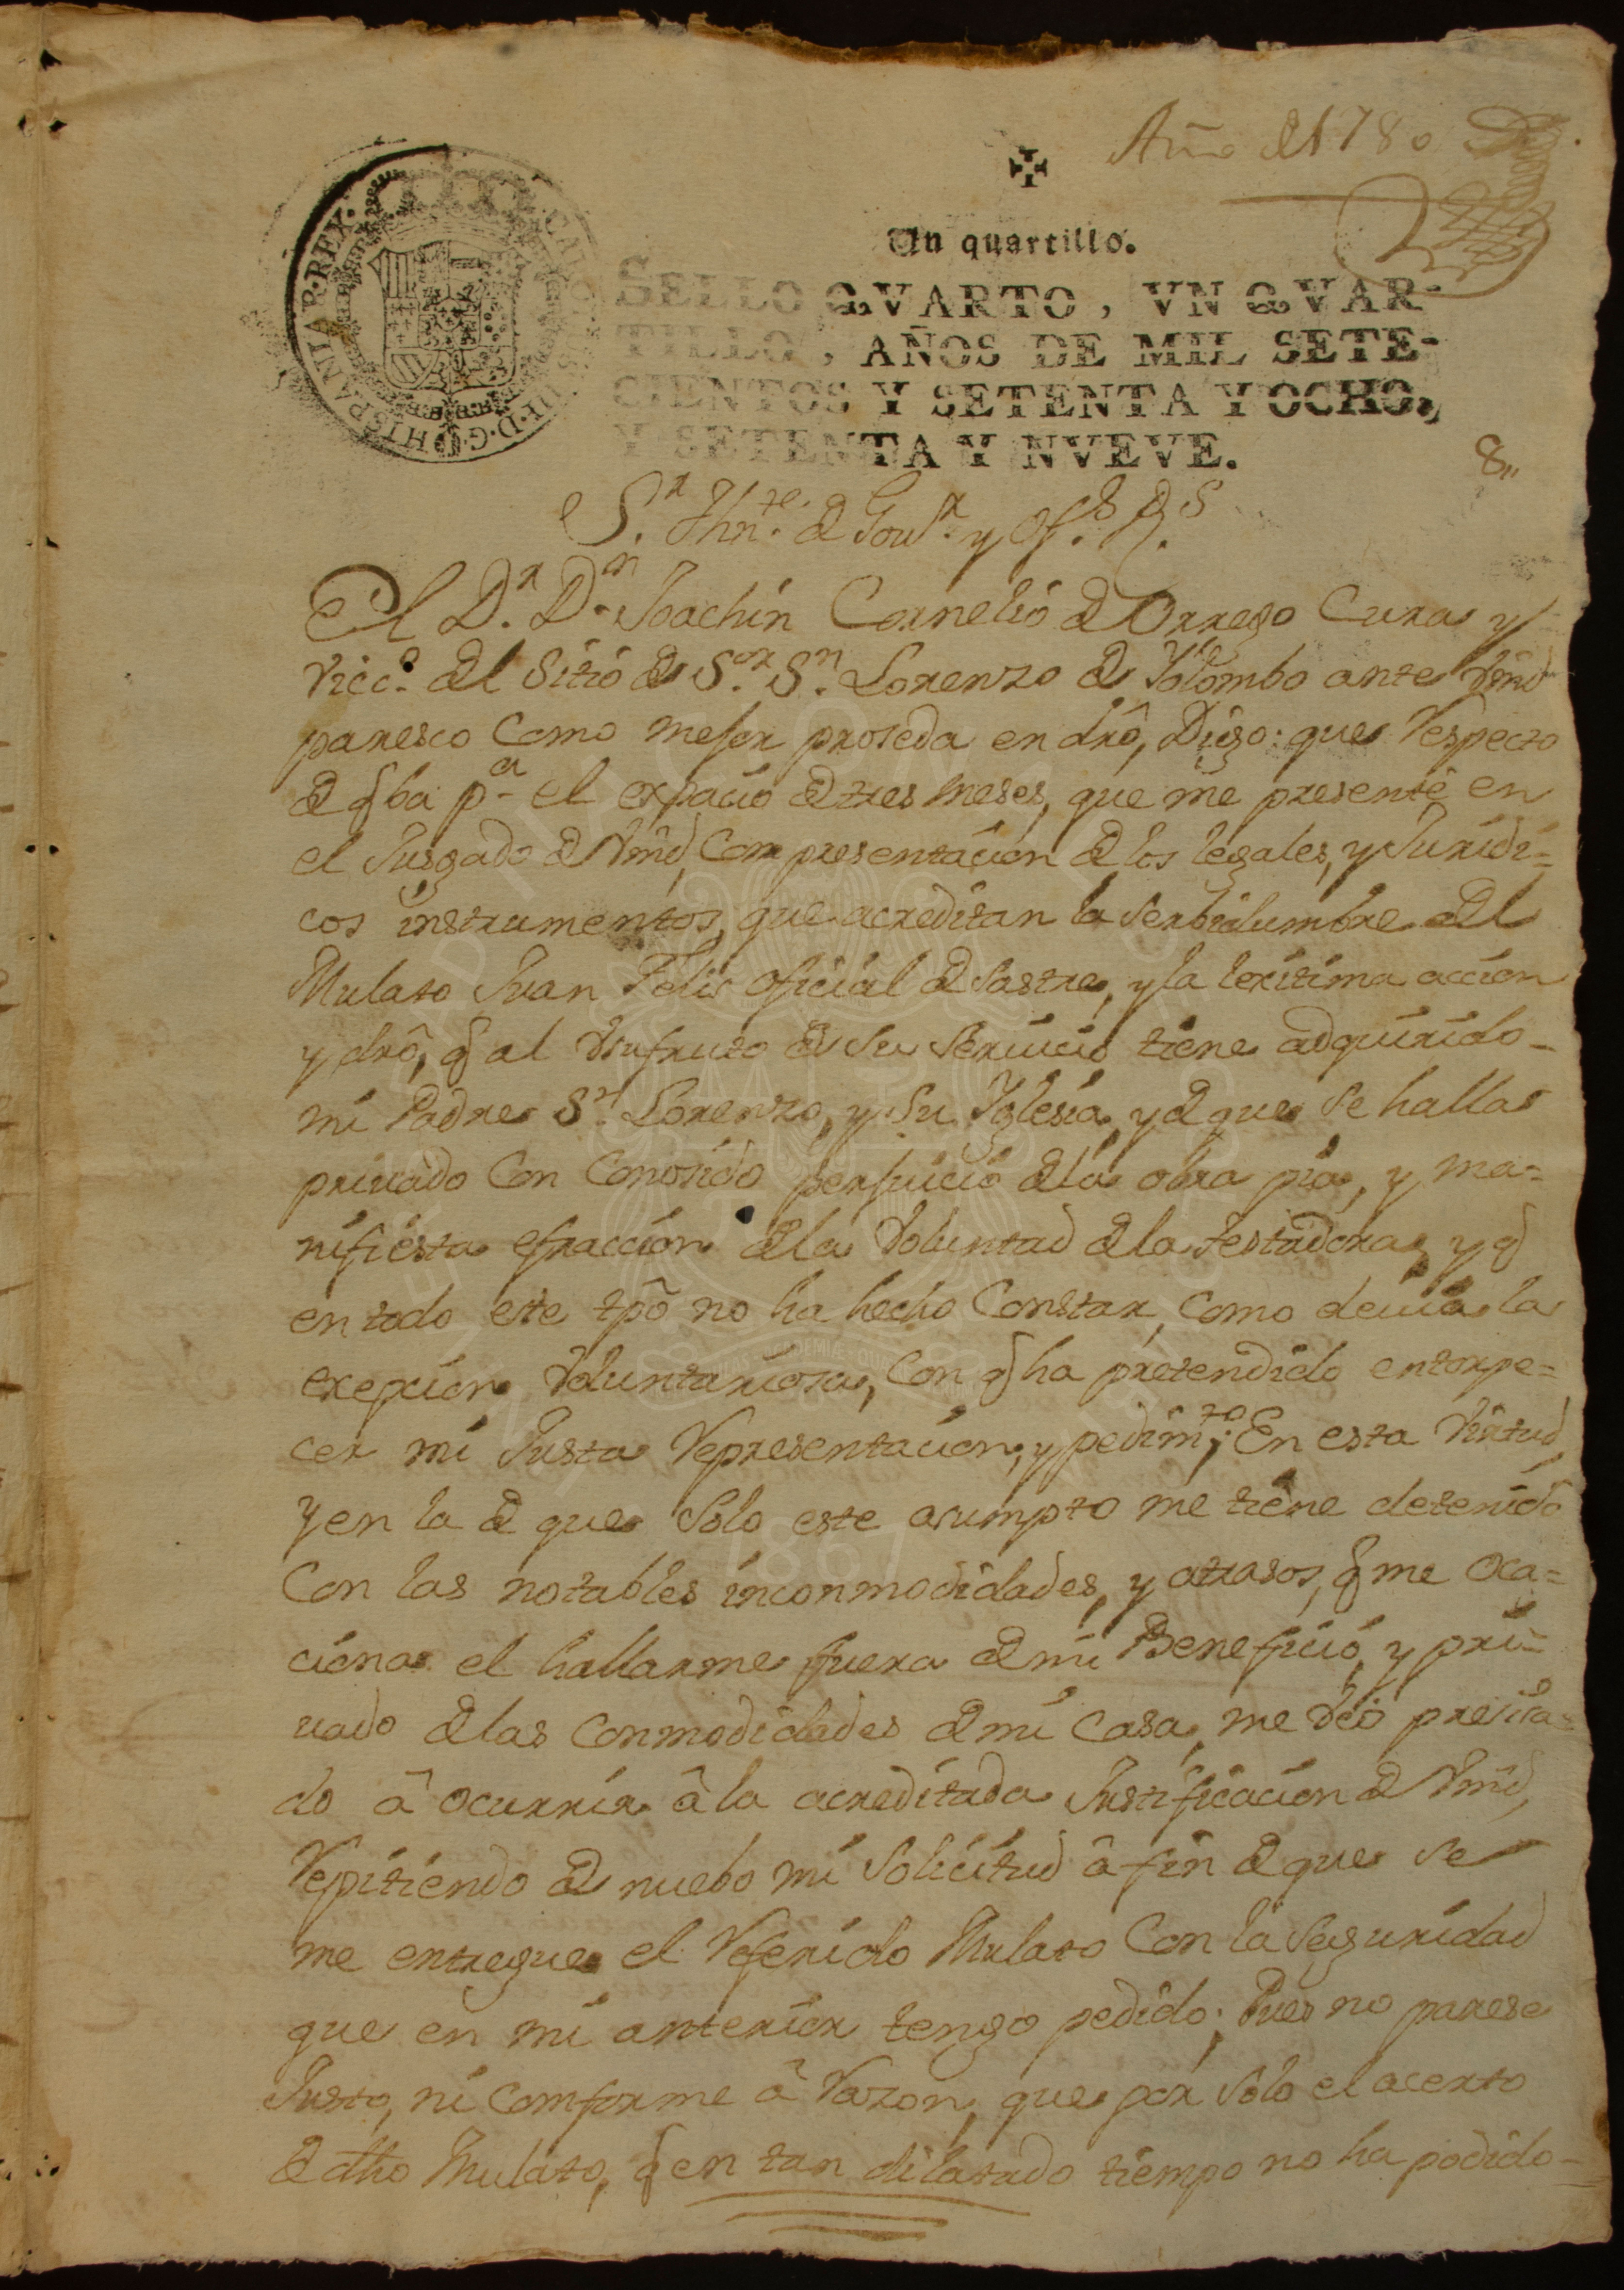 Año de 1780
Un quartillo.
SELLO QVARTO, VN QVAR-
TILLO, AÑOS DE MIL SETE-
CIENTOS Y SETENTA Y OCHO,
Y SETENTA Y NVEVE.
HISPANIAR. REX. CAROLUS III. D. G.
8,,
Sr. Thnte. de Govr. y Ofs. Rs.
El Dr. Dn. Joachin Cornelio de Orrego Cura y
Vicco. del Sitio de Sor. Sn. Lorenzo de Yolombo ante Vmd
paresco como mejor proseda en dro, Digo: que respecto
de q ba pa. el espacio de tres meses, que me presente en
el Jusgado de Vmd, Con presentacion de los legales, y Juridi=
cos instrumentos, que acreditan la serbidumbre del
Mulato Juan Felis oficial de sastre, y la lexitima accion
y dro, q al Vsufruto de su servicio tiene adquirido
mi Padre Sn. Lorenzo, y su Yglesia, y de que se halla
privado Con Conosido perjuicio de la obra pia, y ma=
nifiesta efraccion de la Voluntad de la testadora, y q
en todo este tpo no ha hecho Constar, como devia la
exepcion Voluntariosa, Con q ha pretendido entorpe=
cer mi Justa Representacion, y pedimto; En esta Virtud,
y en la de que solo este asumpto me tiene detenido
Con las notables inconmodidades, y atrasos, q me oca=
ciona el hallarme fuera de mi Beneficio, y pri=
vado de las Conmodidades de mi Casa, me Veo presisa=
do â ocurrir â la acreditada Justificacion de Vmd,
Repitiendo de nuebo mi solicitud â fin de que se
me entregue el Referido Mulato Con la seguridad
que en mi anterior tengo pedido; Pues no parese
Justo, ni Comforme â Razon, que por solo el acerto
de dho Mulato, q en tan dilatado tiempo no ha podido